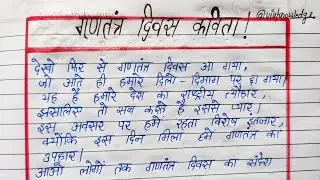 गणतंत्र दिवस कविता!
देखो फिर से गणतंत्र दिवस आ गया,
जो आते ही हमारे दिलो-दिमाग पर छा गया।
यह है हमारे देश का राष्ट्रीय त्यौहार,
इसलिए तो सब करते हैं इससे प्यार।
इस अवसर पर हमें रहता विशेष इंतजार,
क्योंकि इस दिन मिला हमें गणतंत्र का
उपहार।
आओ लोगों तक गणतंत्र दिवस का संदेश